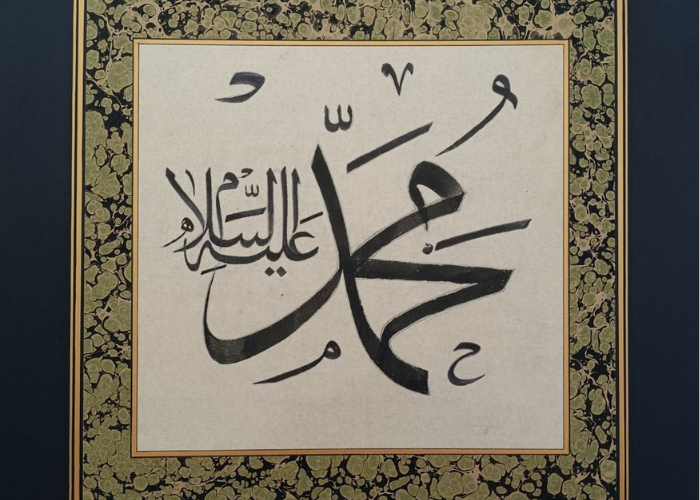 مُحَمَّد
عَلَيْهِ السَّلام